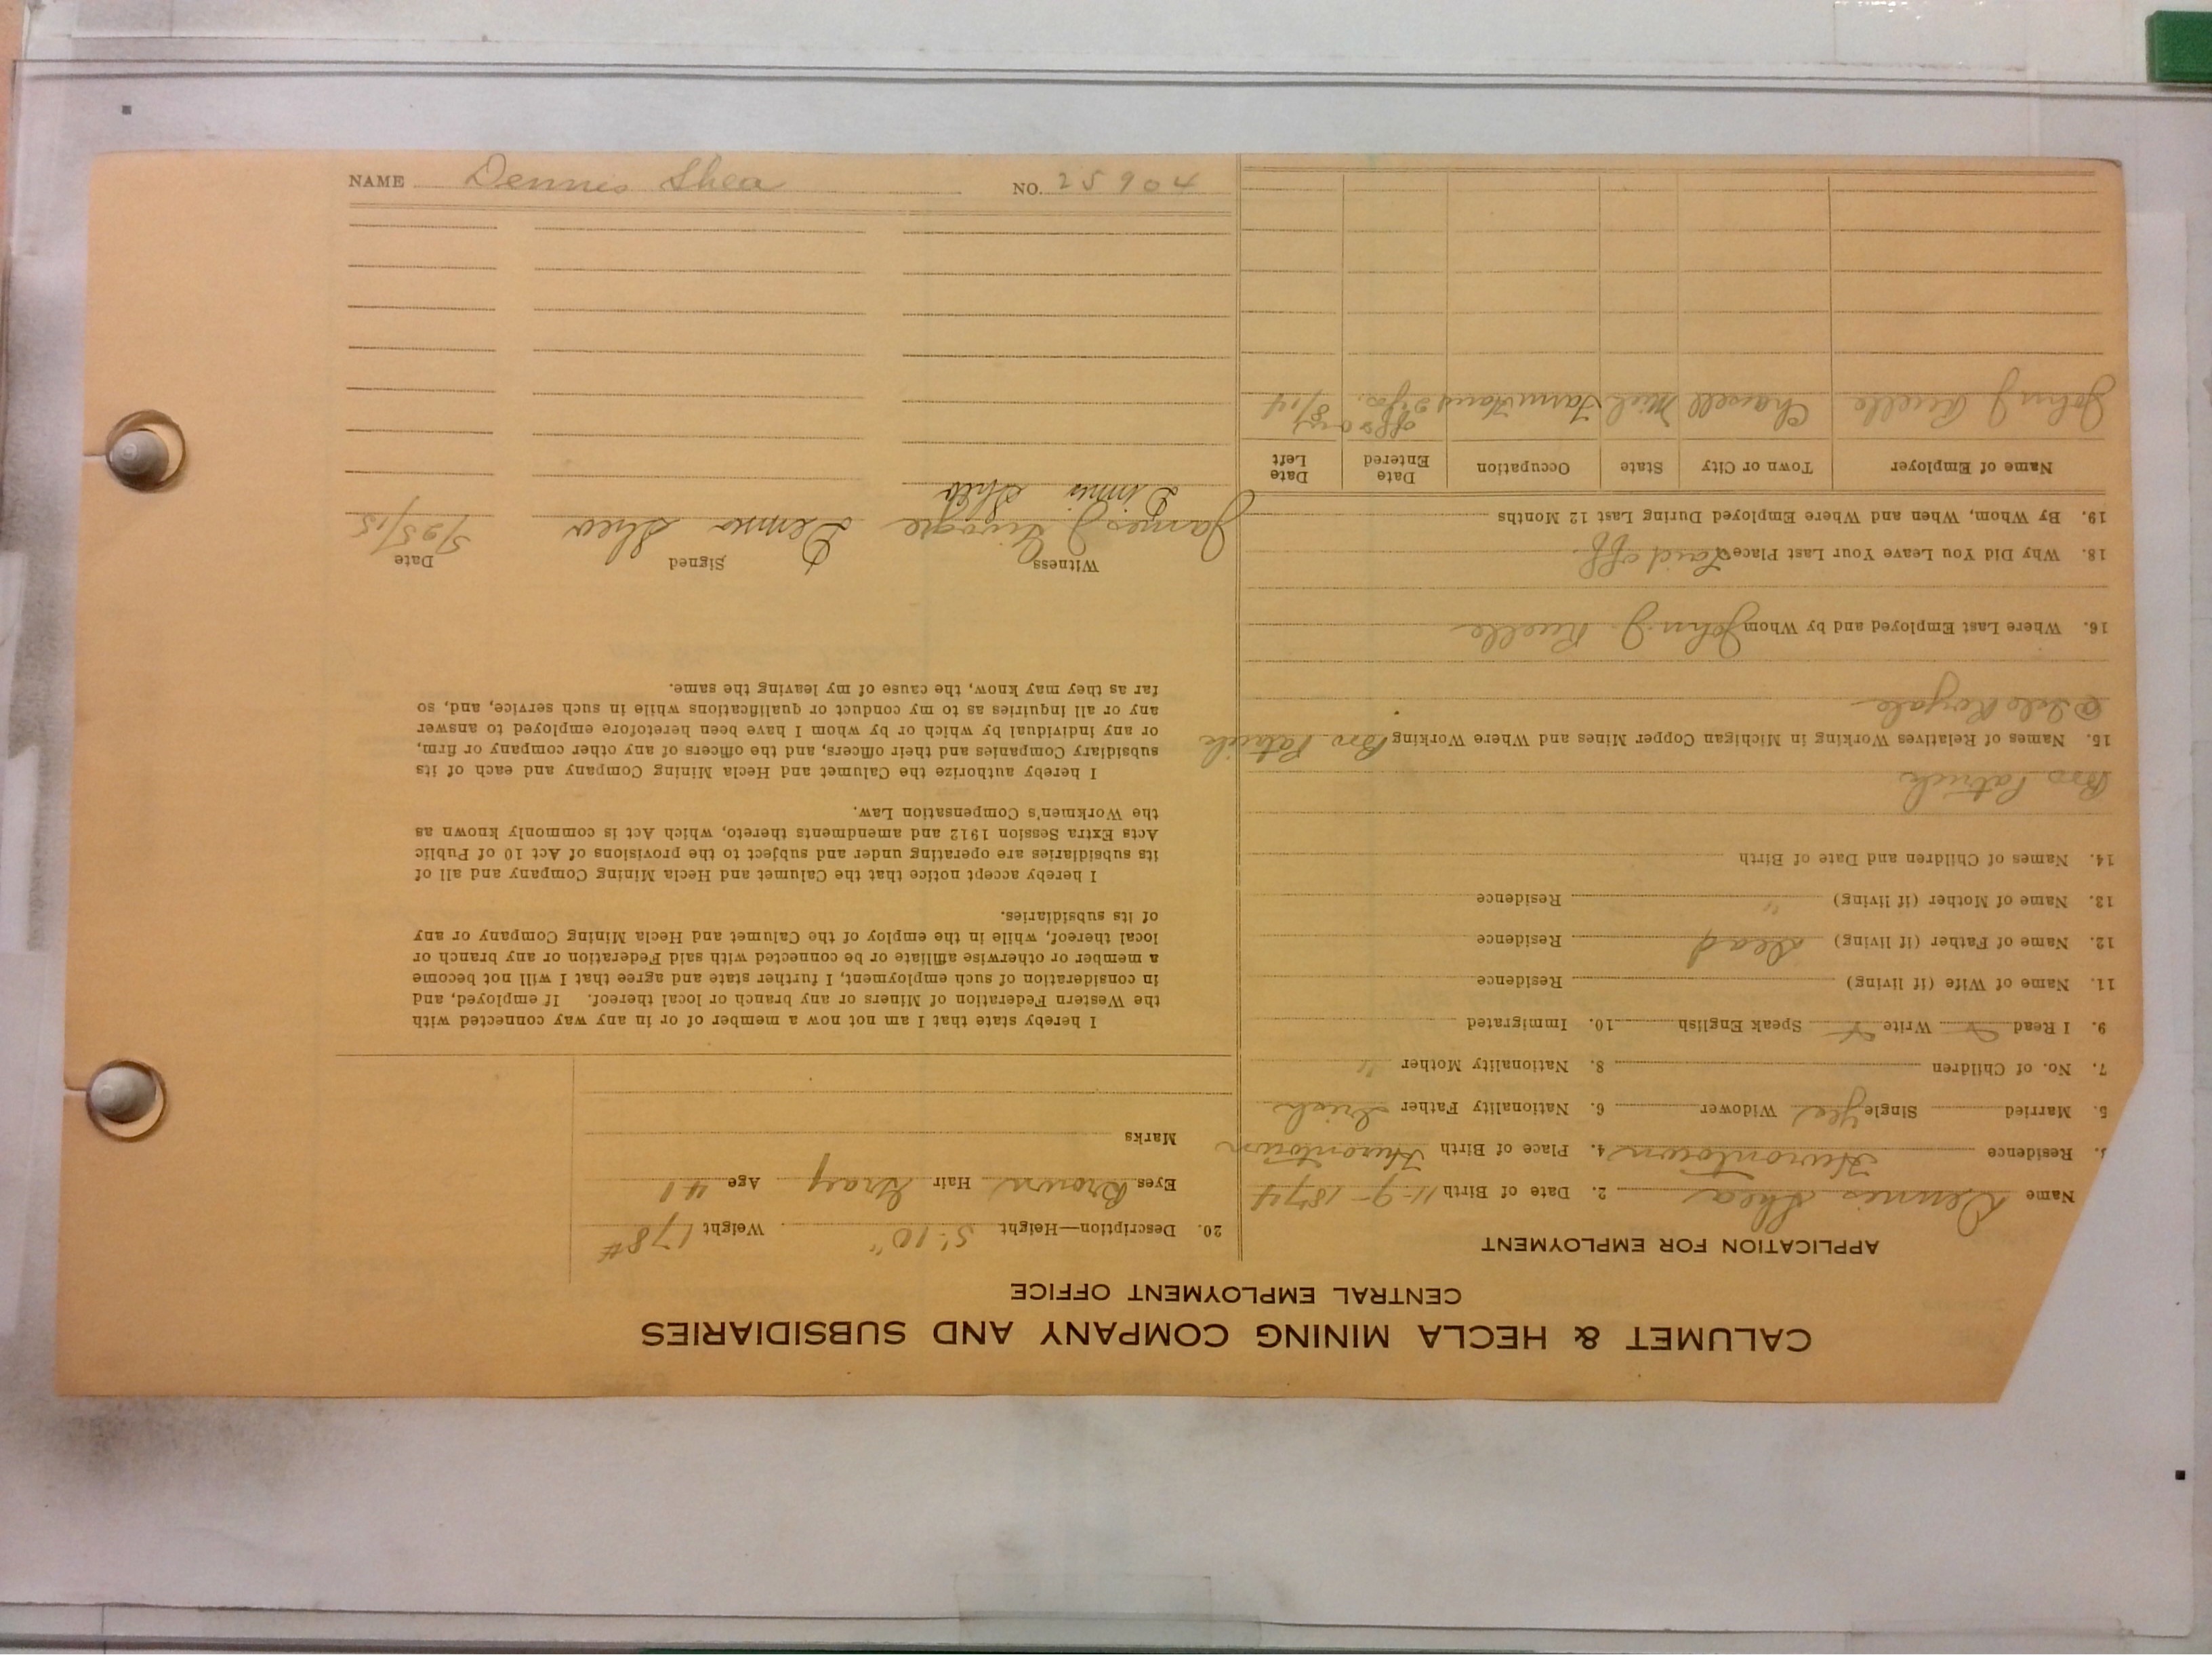 CALUMET & HECLA MINING COMPANY AND SUBSIDIARIES
CENTRAL EMPLOYMENT OFFICE
APPLICATION FOR EMPLOYMENT
Name Dennis Shea 2. Date of Birth 11-9-1874
3. Residence Hurontown 4. Place of Birth Hurontown
5. Married Single Yes Widower 6. Nationality Father Irish
7. No. of Children 8. Nationality Mother "
9. I Read Write Speak English 10. Immigrated
11. Name of Wife (if living) Residence
12. Name of Father (if living) Dead Residence
13. Name of Mother (if living) " Residence
14. Names of Children and Date of Birth
Bro Patrick
15. Names of Relatives Working in Michigan Copper Mines and Where Working Bro Patrick
@ Isle Royale
16. Where Last Employed and by Whom John J. Ruelle
18. Why Did You Leave Your Last Place Laid off.
19. By Whom, When and Where Employed During Last 12 Months
Name of Employer Town or City State Occupation Date Entered Date Left
John J Ruelle Chassell Mich Farm Hand 2 yrs. off & on 8/14
20. Description—Height 5'.10" Weight 178#
Eyes Brown Hair Gray Age 41
Marks
I hereby state that I am not now a member of or in any way connected with
the Western Federation of Miners or any branch or local thereof. If employed, and
in consideration of such employment, I further state and agree that I will not become
a member or otherwise affiliate or be connected with said Federation or any branch or
local thereof, while in the employ of the Calumet and Hecla Mining Company or any
of its subsidiaries.
I hereby accept notice that the Calumet and Hecla Mining Company and all of
its subsidiaries are operating under and subject to the provisions of Act 10 of Public
Acts Extra Session 1912 and amendments thereto, which Act is commonly known as
the Workmen's Compensation Law.
I hereby authorize the Calumet and Hecla Mining Company and each of its
subsidiary Companies and their officers, and the officers of any other company or firm,
or any individual by which or by whom I have been heretofore employed to answer
any or all inquiries as to my conduct or qualifications while in such service, and, so
far as they may know, the cause of my leaving the same.
Witness Signed Date
James J. Dennis Shea 5/25/15
Dennis Shea
NAME Dennis Shea NO. 25904